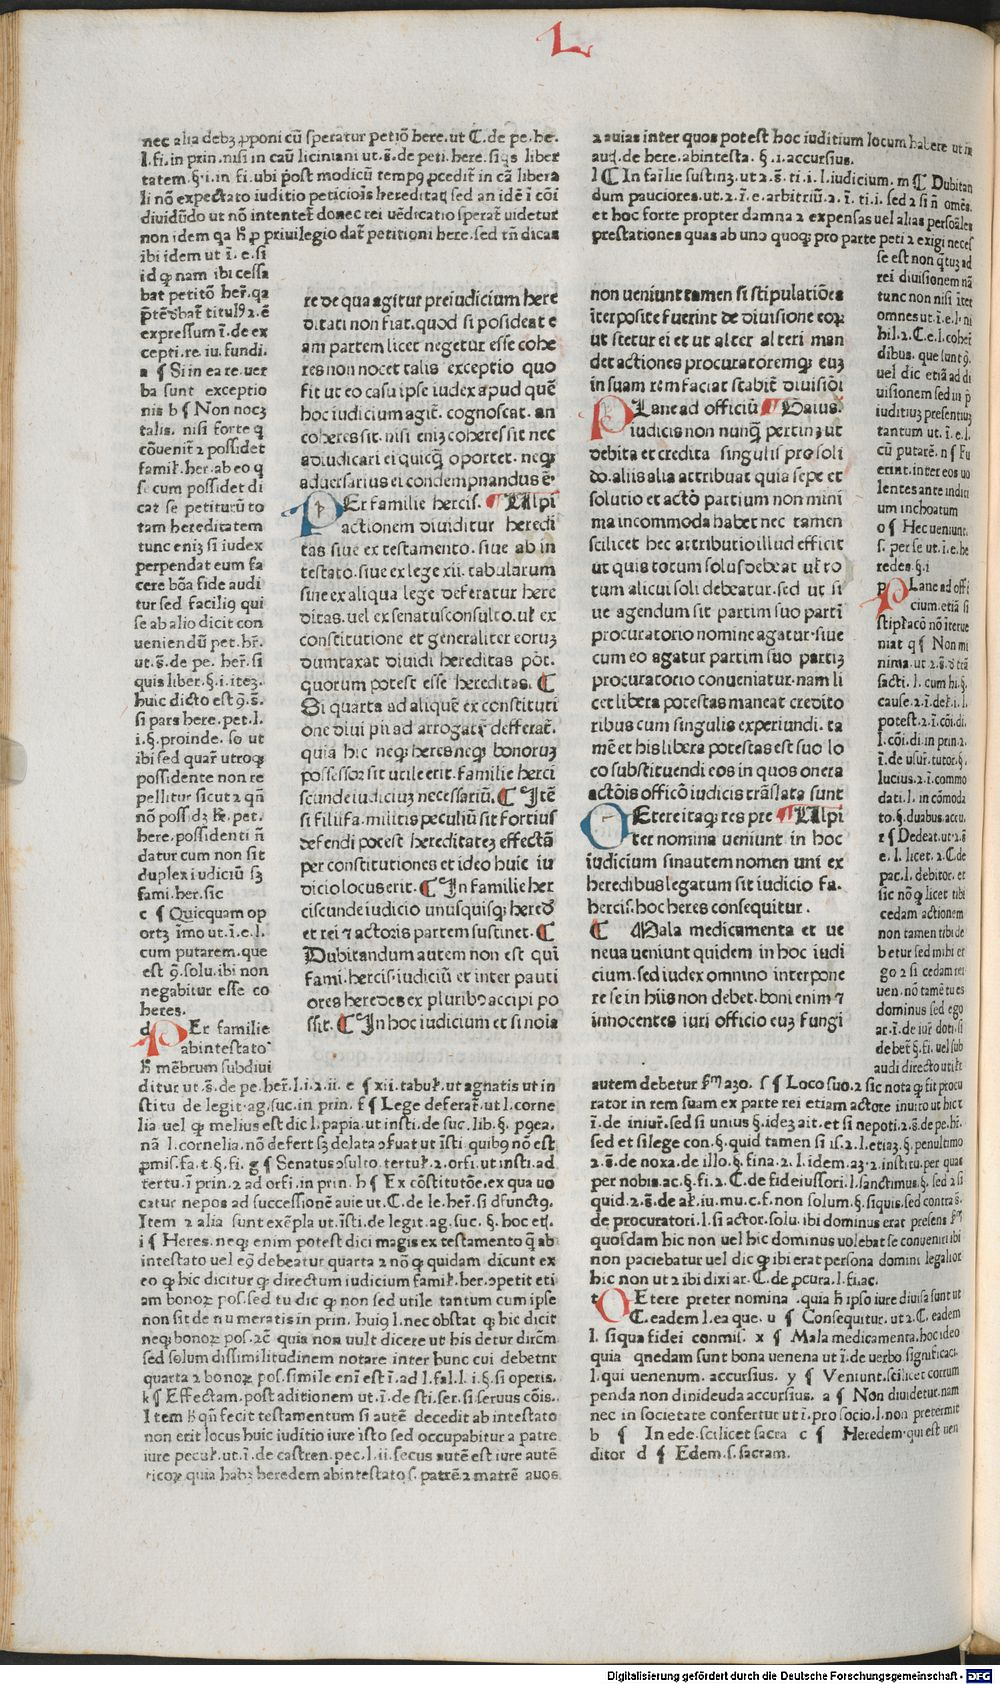 L
nec alia debꝫ ꝓponi cū speratur petiō here. ut C. de pe. he.
l. fi. in prin. nisi in cau̅ liciniani ut. s̄. de peti. here. si q̄s liber
tatem. §. i. in fi. ubi p̄ost modicū tempꝰ ꝓcedit̄ in cā libera
li nō expectato iuditio peticiōis hereditaꝗ sed an idē ī cōi
diuidūdo ut nō intentet̄ donec rei uēdicatio sperat̄ uidetur
non idem qa h̄ ꝓ priuilegio dat̄ petitioni here. sed tn̄ dicas
ibi idem ut ī. e. si
id ꝙ nam ibi cessa
bat petitō her̄. qa
expressum ī. de ex
cepti. re. iu. fundi.
a ¶ Si in ea re. uer
ba sunt exceptio
nis b ¶ Non nocꝫ
talis. nisi forte q
cōuenit̄ ꝛ possidet
famił. her. ab eo q
se cum possidet di
cat se petiturū to
tam hereditatem
tunc eniꝫ si iudex
perpendat eum fa
cere bōa fide audi
tur sed faciliꝰ qui
se ab alio dicit con
ueniendū pet. hr̄.
ut. s̄. de pe. her̄. si
quis liber. §. i. iteꝫ.
huic dicto est ꝯ. s̄.
si pars here. pet. l.
i. §. proinde. so ut
ibi sed quar̄ utroqꝫ
possidente non re
pellitur sicut ꝛ qn̄
nō poss. dꝫ hr̄e. pet.
here. possidenti n̄
datur cum non sit
duplex iudiciū sꝫ
fami. her. sic
c ¶ Quicquam op
ortꝫ īmo ut. ī. e. l.
cum putarem. que
est ꝯ̄. solu. ibi non
negabitur esse co
heres.
d PEr familie
abintestato
h̄ mēbrum subdiui
ditur ut. s̄. de pe. her̄. l. i. ꝛ. ii. e ¶ xii. tabuł. ut agnatis ut in
stitu de legit. ag. suc. in prin. f ¶ Lege deferat̄. ut l. corne
lia uel ꝙ melius est dic l. papia. ut insti. de suc. lib. §. pꝰea.
nā l. cornelia. nō defert sꝫ delata ꝯfirmat ut īsti. quibꝰ nō est
ꝑmis. fa. t. §. fi. g ¶ Senatusꝯsulto. tertuł. ꝛ. orfi. ut insti. ad
tertu. ī prin. ꝛ ad orfi. in prin. h ¶ Ex cōstitutōe. ex qua uo
catur nepos ad successionē auie ut. C. de le. her̄. si dfunctꝰ.
Item ꝛ alia sunt exēpla ut. īsti. de legit. ag. suc. §. hoc etꝗ.
i ¶ Heres. neqꝫ enim potest dici magis ex testamento q̄ ab
intestato uel eꝰ debeatur quarta ꝛ nō ꝙ quidam dicunt ex
eo ꝙ hic dicitur ꝙ directum iudicium famił. her. ꝯpetit eti
am bonoꝝ pos. sed tu dic ꝙ non sed utile tantum cum ipse
non sit de nu meratis in prin. huiꝰ l. nec obstat ꝙ hic dicit
neqꝫ bonoꝝ pos. ꝛc̄ quia non uult dicere ut his detur dircm̄
sed solum dissimilitudinem notare inter hunc cui debetur
quarta ꝛ bonoꝝ pos. simile eni̅ est ī. ad l. fal. l. i. §. si operis.
k ¶ Effectam. post aditionem ut. ī. de sti. ser. si seruus cōis.
Item h̄ qn̄ fecit testamentum si autē decedit ab intestato
non erit locus huic iuditio iure isto sed occupabitur a patre
iure pecuł. ut. ī. de castren. pec. l. ii. secus autē est iure autē
ticoꝝ quia habꝫ heredem abintestato s. patrē ꝛ matrē auos
re de qua agitur preiudicium here
ditati non fiat. quod si posideat e
am partem licet negetur esse cohe
res non nocet talis exceptio quo
fit ut eo casu ipse iudex apud quē
hoc iudicium agit̄. cognoscat. an
coheres sit. nisi eniꝫ coheres sit nec
adiudicari ei quicꝗ oportet. neqꝫ
aduersarius ei condempnandus ē.
PEr familie hercis. ¶ Ulpi
actionem diuiditur heredi
tas siue ex testamento. siue ab in
testato. siue ex lege xii. tabularum
siue ex aliqua lege deferatur here
ditas. uel ex senatusconsulto. uł ex
constitutione et generaliter eoruꝫ
dumtaxat diuidi hereditas pōt.
quorum potest esse hereditas. C
Si quarta ad aliquē ex constituti
one diui pii ad arrogatū defferat̄.
quia hic neqꝫ heres neqꝫ bonoruꝫ
possessor sit utile erit. familie herci
scunde iudiciuꝫ necessariū. C Itē
si filii fa. militis peculiū sit fortius
defendi potest hereditateꝫ effectā
per constitutiones et ideo huic iu
dicio locus erit. C In familie her
ciscunde iudicio unusquisqꝫ hered̄
et rei ⁊ actoris partem sustinet. C
Dubitandum autem non est qui̅
fami. hercis. iudiciū et inter pauti
ores heredes ex pluribꝰ accipi po
ssit. C In hoc iudicium et si noīa
ꝛ auias inter quos potest hoc iuditium locum habere ut in
auꝗ. de here. abintesta. §. i. accursius.
l C In fai̅lie sustinꝫ. ut ꝛ. s̄. ti. i. l. iudicium. m C Dubitan
dum pauciores. ut. ꝛ. ī. e. arbitriū. ꝛ. ī. ti. i. sed ꝛ si n̄ omēs.
et hoc forte propter damna ꝛ expensas uel alias persōales
prestationes quas ab uno quoqꝫ pro parte peti ꝛ exigi neces
se est non ꝙ tuꝫ ad
rei diuisionem nā
tunc non nisi īter
omnes ut. ī. e. l. ni
hil. ꝛ. C. e. l. coher̄
dibus. que sunt ꝯ̄.
uel dic etiā ad di
uisionem sed in p̄
iuditiuꝫ presentiuꝫ
tantum ut. ī. e. l.
cū putarē. n ¶ Fu
erint. inter eos uo
lentes ante indici
um inchoatum
o ¶ Hec ueniunt.
s. per se ut. ī. e. he
redes. §. i
p PLane ad offi
cium. etiā si
stiplatō nō īterue
niat q ¶ Non mi
nima. ut ꝛ. s̄. d trā
sacti. l. cum hi. §.
cause. ꝛ. ī. def. i. l.
potest. ꝛ. ī. cōi. di.
l. cōi. di. in prin. ꝛ.
ī. de usur̄. tutor. §.
lucius. ꝛ. ī. commo
dati. l. in cōmoda
to. §. duabus. accu.
r ¶ Dedeat. ut. ꝛ. s̄
e. l. licet. ꝛ. C. de
pac. l. debitor. et
sic nō ꝙ licet tibi
cedam actionem
non tamen tibi de
betur sed mihi er
go ꝛ si cedam rei
uen. nō tamē tu es
dominus sed ego
ar. ī. de iur̄ doti. si
debet̄ §. fi. uel sub
audi directo utiłr
non ueniunt tamen si stipulatiōes
īterposite fuerint de diuisione eoꝝ
ut stetur ei et ut alter alteri man
det actiones procuratoremqꝫ euꝫ
in suam rem faciat stabit̄ diuisiōi
PLane ad officiū ¶ Gaius.
iudicis non nunꝗ pertinꝫ ut
debita et credita singulis pro soli
do. aliis alia attribuat quia sepe et
solutio et actō partium non mini
ma incommoda habet nec tamen
scilicet hec attributio illud efficit
ut quis totum solus debeat uł to
tum alicui soli debeatur. sed ut si
ue agendum sit partim suo parti̅
procuratorio nomine agatur. siue
cum eo agatur partim suo partiꝫ
procuratorio conueniatur. nam li
cet libera potestas maneat credito
ribus cum singulis experiundi. ta
mē et his libera potestas est suo lo
co substituendi eos in quos onera
actōis officō iudicis trāslata sunt
CEtere itaqꝫ res pre ¶ Ulpi
ter nomina ueniunt in hoc
iudicium sin autem nomen uni ex
heredibus legatum sit iudicio fa.
hercis. hoc heres consequitur.
C Mala medicamenta et ue
neua ueniunt quidem in hoc iudi
cium. sed iudex omnino interpone
re se in hiis non debet. boni enim ⁊
innocentes iuri officio euꝫ fungi
autem debetur ẜm azo. s ¶ Loco suo. ꝛ sic nota ꝙ fit procu
rator in rem suam ex parte rei etiam actore inuito ut hic ꝛ
ī. de iniur̄. sed si unius §. ideꝫ ait. et si nepoti. ꝛ. s̄. de pe. hi.
sed et si lege con. §. quid tamen si is. ꝛ. l. etiaꝫ. §. penultimo
ꝛ. s̄. de noxa. de illo. §. fina. ꝛ. l. idem. aꝫ. ꝛ. institu. per quas
per nobis. ac. §. fi. ꝛ. C. de fideiussori. l. sanctimus. §. sed ꝛ si
quid. ꝛ. s̄. de ał. iu. mu. c. f. non solum. §. si quis. sed contra s̄.
de procuratori. l. si actor. solu. ibi dominus erat presens ẜm
quosdam hic non uel hic dominus uolebat se conueniri ibi
non paciebatur uel dic ꝙ ibi erat persona domini legalior
hic non ut ꝛ ibi dixi ar. C. de ꝓcura. l. fi. ac.
t CEtere preter nomina. quia h̄ ipso iure diuisa sunt ut
C. eadem l. ea que. u ¶ Consequitur. ut ꝛ. C. eadem
l. si qua fidei conmis. x ¶ Mala medicamenta. hoc ideo
quia quedam sunt bona uenena ut ī. de uerbo. significaci.
l. qui uenenum. accursius. y ¶ Veniunt. scilicet eorum
penda non dinideuda accursius. a ¶ Non diuidetur. nam
nec in societate confertur ut ī. pro socio. l. non pretermit
b ¶ In ede. scilicet sacra c ¶ Heredem. qui est uen
ditor d ¶ Edem. s. sacram.
Digitalisierung gefördert durch die Deutsche Forschungsgemeinschaft - DFG